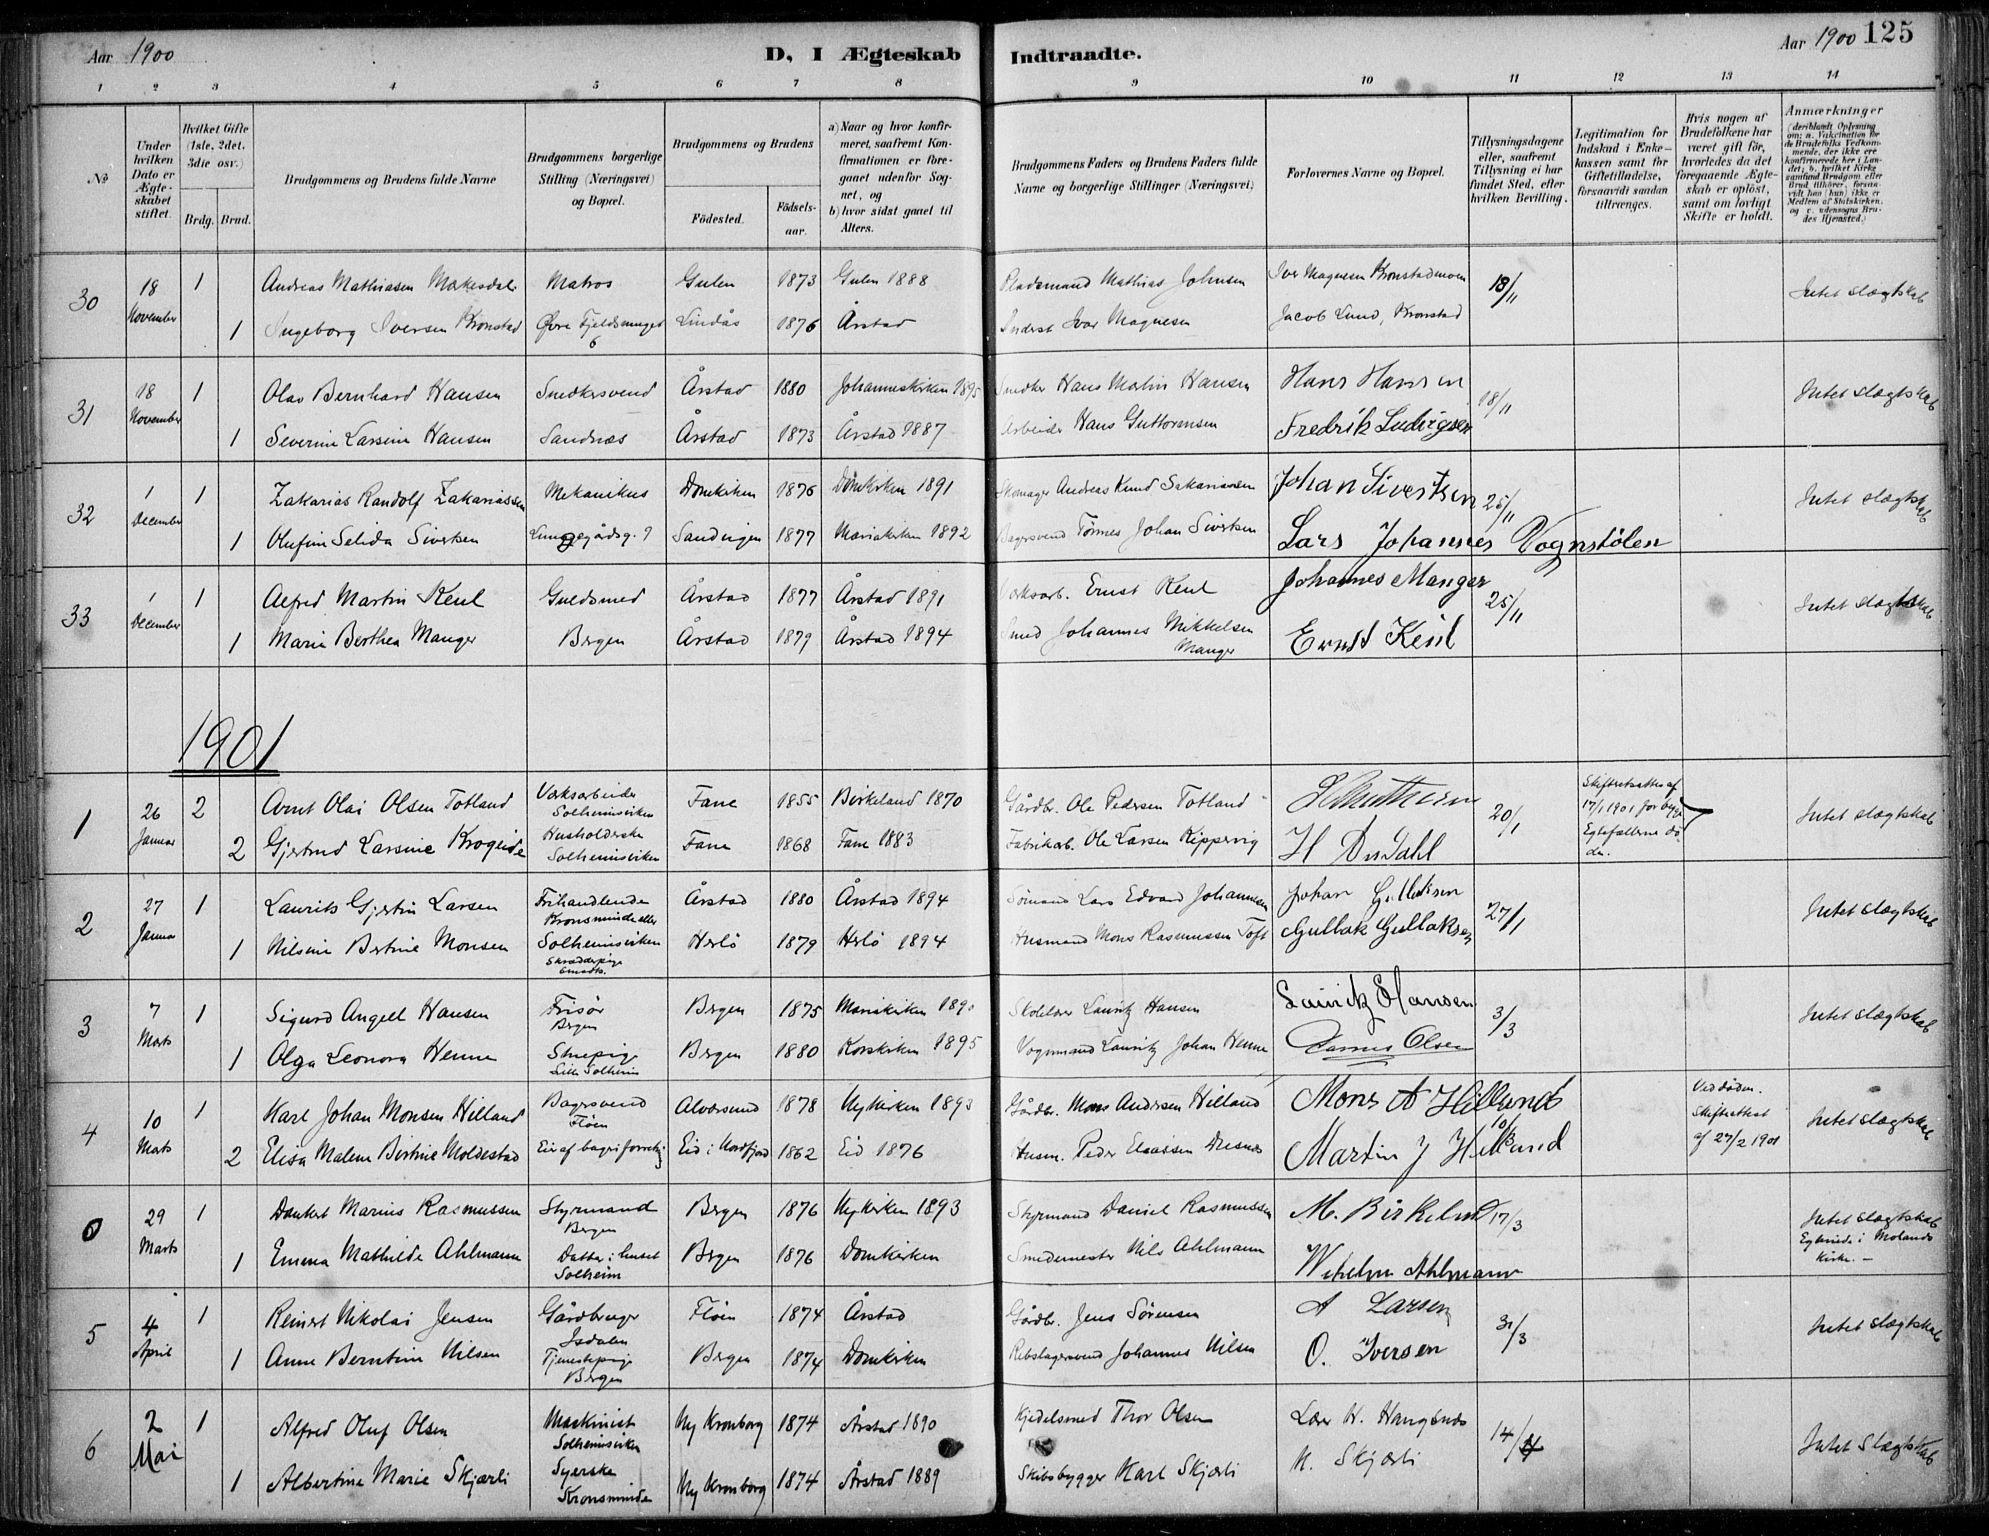 Aar 1900
D, I Ægteskab Indtraadte.
Aar 1900 125
1 2 3 4 5 6 7 8 9 10 11 12 13 14
No
Under hvilken Dato er Ægte-skabet stiftet.
Hvilket Gifte (1ste, 2det. 3die osv.)
Brdg. Brud.
Brudgommens og Brudens fulde Navne
Brudgommens borgerlige Stilling (Næringsvei) og Bopæl.
Brudgommens og Brudens
Födested.
Födsels-aar.
a) Naar og hvor konfir-meret, saafremt Kon-firmationen er fore-gaaet udenfor Sog-net, og
b) hvor sidst gaaet til Alters.
Brudgommens Faders og Brudens Faders fulde Navne og borgerlige Stillinger (Næringsvei)
Forlovernes Navne og Bopæl.
Tillysningsdagene eller, saafremt Tillysning ei har fundet Sted, efter hvilken Bevilling.
Legitimation for Indskud i Enke-kassen samt for Giftetilladelse, forsaavidt saadan tiltrænges.
Hvis nogen af Brudefolkene har været gift før, hvorledes da det foregaaende Ægte-skab er oplöst, samt om lovligt Skifte er holdt.
Anmærkninger
(deriblandt Oplysning om: a. Vakcination for de Brudefolks Vedkom-mende, der ikke ere konfirmerede her i Lan-det; b. hvilket Kirke-samfund Brudgom eller Brud tilhörer, forsaa-vidt han (hun) ikke er Medlem af Statskirken, og c. udensogns Bru-des Hjemsted.)
30 18 November 1 Andreas Mathiasen Mækesdal Matros Gulen 1873 Gulen 1888 Pladsmand Mathias Johnsen Iver Magnesen Kronstadmoen 18/11 Intet slægtskab
1 Ingeborg Iversen Kronstad Øvre Fjeldsmuget 6 Lindås 1876 Årstad Inderst Ivar Magnesen Jacob Lund, Kronstad
31 18 November 1 Olav Bernhard Hansen Snedkersvend Årstad 1880 Johanneskirken 1895 Snedker Hans Martin Hansen Hans Hansen 18/11 Intet slægtskab
1 Severine Larsine Hansen Sandnæs Årstad 1873 Årstad 1887 Arbeider Hans Guttormsen Fredrik Ludvigsen
32 1 December 1 Zakarias Randolf Zakariassen Mekanikus Domkirken 1876 Domkirken 1891 Skomager Andreas Knud Sakariassen Johan Sivertsen 25/11 Intet slægtskab
1 Olufine Selida Sivertsen Lungegårdsg. 9 Sandvigen 1877 Mariakirken 1892 Bagersvend Tønnes Johan Sivertsen Lars Johannes Vognstølen
33 1 December 1 Alfred Martin Keul Guldsmed Årstad 1877 Årstad 1891 Værksarb. Ernst Keul Johannes Manger 25/11 Intet slægtskab
1 Marie Berthea Manger Bergen Årstad 1879 Årstad 1894 Smed Johannes Mikkelsen Manger Ernst Keul
1901
1 26 Januar 2 Arnt Olai Olsen Totland Værksarbeider Solheimsviken Fane 1855 Birkeland 1870 Gårdbr. Ole Pedersen Totland 20/1 Skifteretsattes af 17/1 1901 for begge Egtefællerne døde. Intet slægtskab
2 Gjertrud Larsine Krogeide Husholderske Solheimsviken Fane 1868 Fane 1883 Fabrikarb. Ole Larsen Kippervig H
2 27 Januar 1 Laurits Gjertin Larsen Frihandlende Kronsminde aller Årstad 1880 Årstad 1894 Sømand Lars Edvard Johannesen Johan Gullaksen 27/1 Intet slægtskab
1 Nilsine Bertine Monsen Solheimsviken Herlö 1879 Herlö 1894 Husmand Mons Rasmussen Toft Gullak Gullaksen
3 7 Marts 1 Sigurd Angell Hansen Frisør Bergen Bergen 1875 Mariakirken 1890 Skolelærer Lauritz Hansen Lauritz Hansen 3/3 Intet slægtskab
1 Olga Leonora Henne Stuepige Lille Solheim Bergen 1880 Korskirken 1895 Vognmand Lauritz Johan Henne Olsen
4 10 Marts 1 Karl Johan Monsen Hilland Bagersvend Fløen Alversund 1878 Nykirken 1893 Gårdbr. Mons Andersen Hilland Mons A Hilland 10/3 Ved døden. Skifteattest af 27/2 1901 Intet slægtskab
2 Elisa Malene Birtine Moldestad Eier af bageriforretng Eid i Nordfjord 1862 Eid 1876 Husm. Peder Eliassen Martin J Hilland
29 Marts 1 Dankert Marius Rasmussen Styrmand Bergen Bergen 1876 Nykirken 1893 Styrmand Daniel Rasmussen M. Birkeland 17/3 Intet slægtskab Egteviede i Molands Kirke. –
1 Emma Mathilde Ahlmann Datter i huset Solheim Bergen 1876 Domkirken Smedemester Nils Ahlmann Wilhelm Ahlmann
5 4 April 1 Reinert Nikolai Jensen Gårdbruger Isdalen Fløen 1874 Årstad Gårdbr. Jens Sørensen A Larsen 31/3 Intet slægtskab
1 Anne Berntine Nilsen Tjenestepige Bergen Bergen 1874 Domkirken Rebslagersvend Johannes Nilsen O. Iversen
6 2 Mai 1 Alfred Oluf Olsen Maskinist Solheimsviken Ny Kronborg 1874 Årstad 1890 Kjedelsmed Thor Olsen Lærer H. Haugsnæs 14/4 Intet slægtskab
1 Albertine Marie Skjærli Syerske Kronsminde Ny Kronborg 1874 Årstad 1889 Skibsbygger Karl Skjærli K. Skjærli